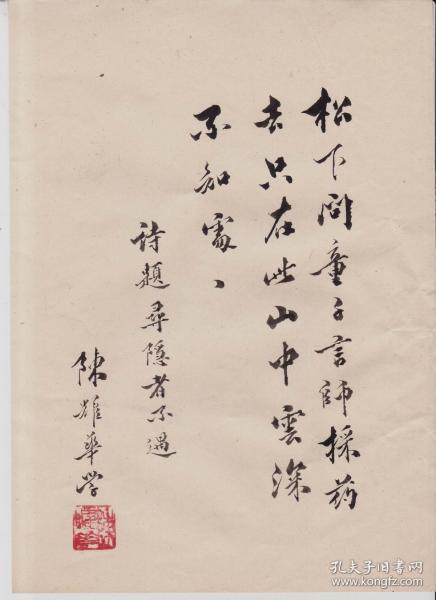 松下問童子言師採药
去只在此山中雲深
不知處、
詩題尋隱者不遇
陳雄華学
孔夫子旧书网
www.kongfz.com